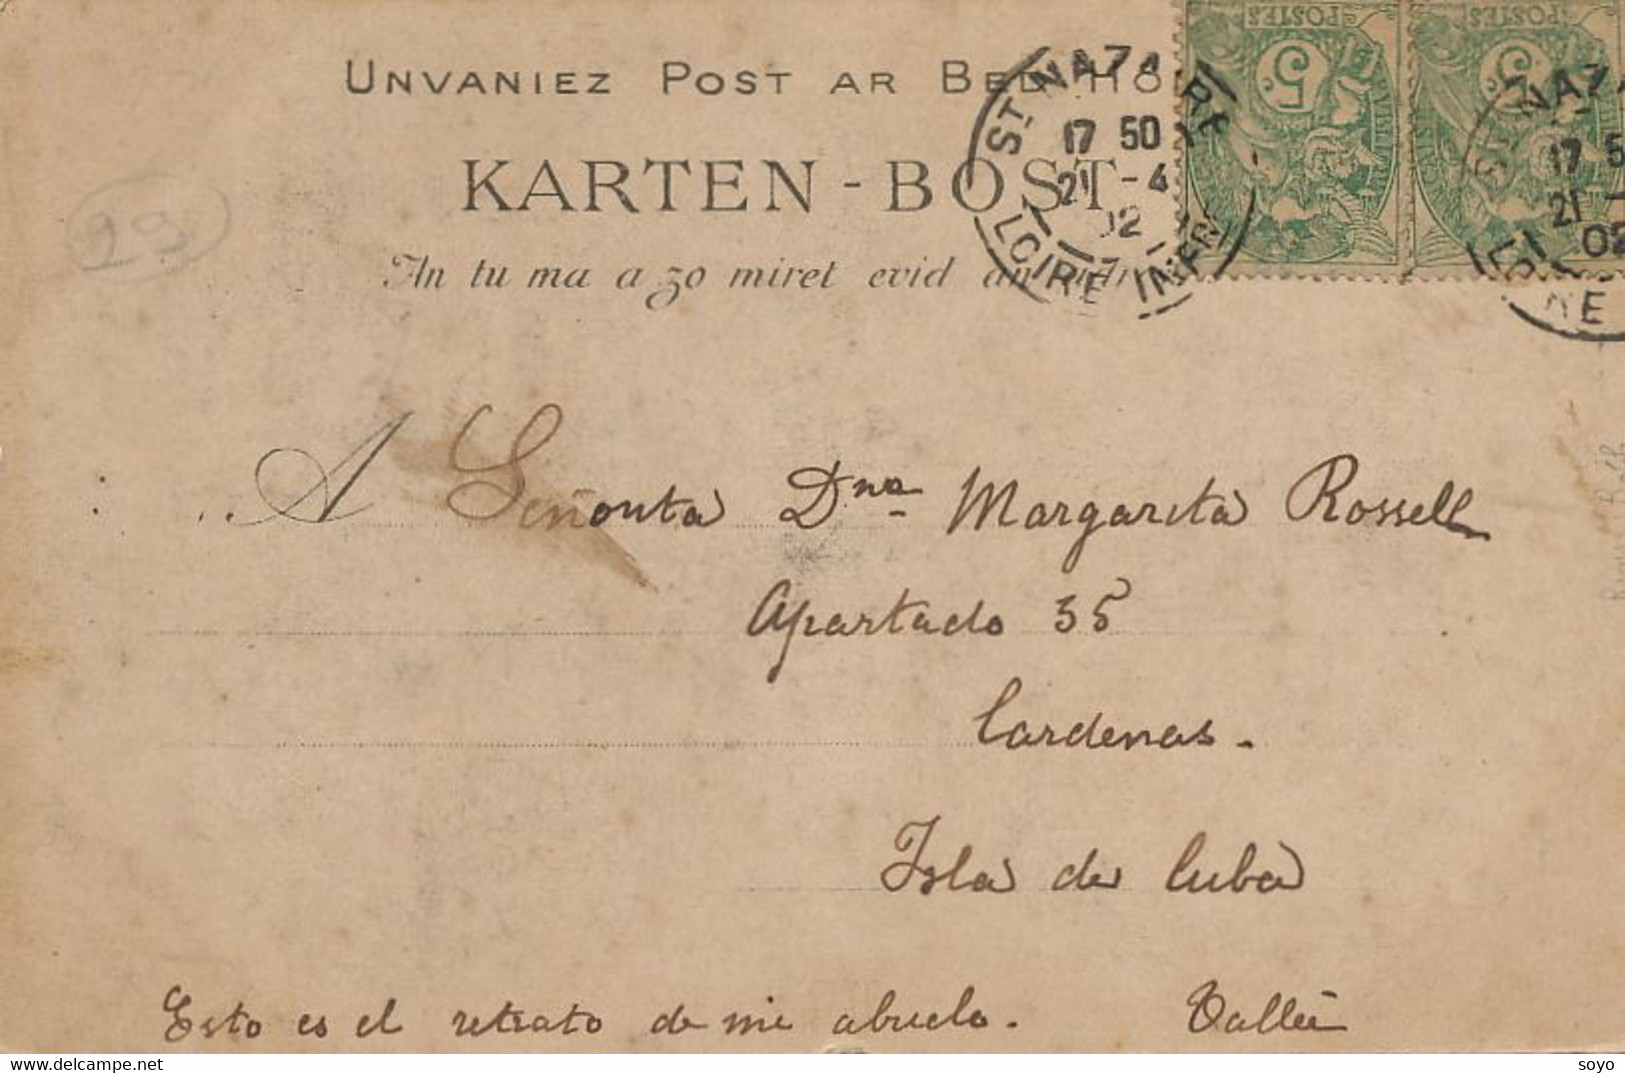 UNVANIEZ POST AR BED HO
KARTEN-BOST
An tu ma a zo miret evid an
POSTES
5c
POSTES
5c
ST NAZAIRE
17 50
21 -4
02
LOIRE INFRE
17 5
21 -
02
29
A Señorita Dña Margarita Rossell
Apartado 35
Cardenas.
Isla de Cuba
Esto es el retrato de mi abuelo. Vallée
https://www.delcampe.net
soyo